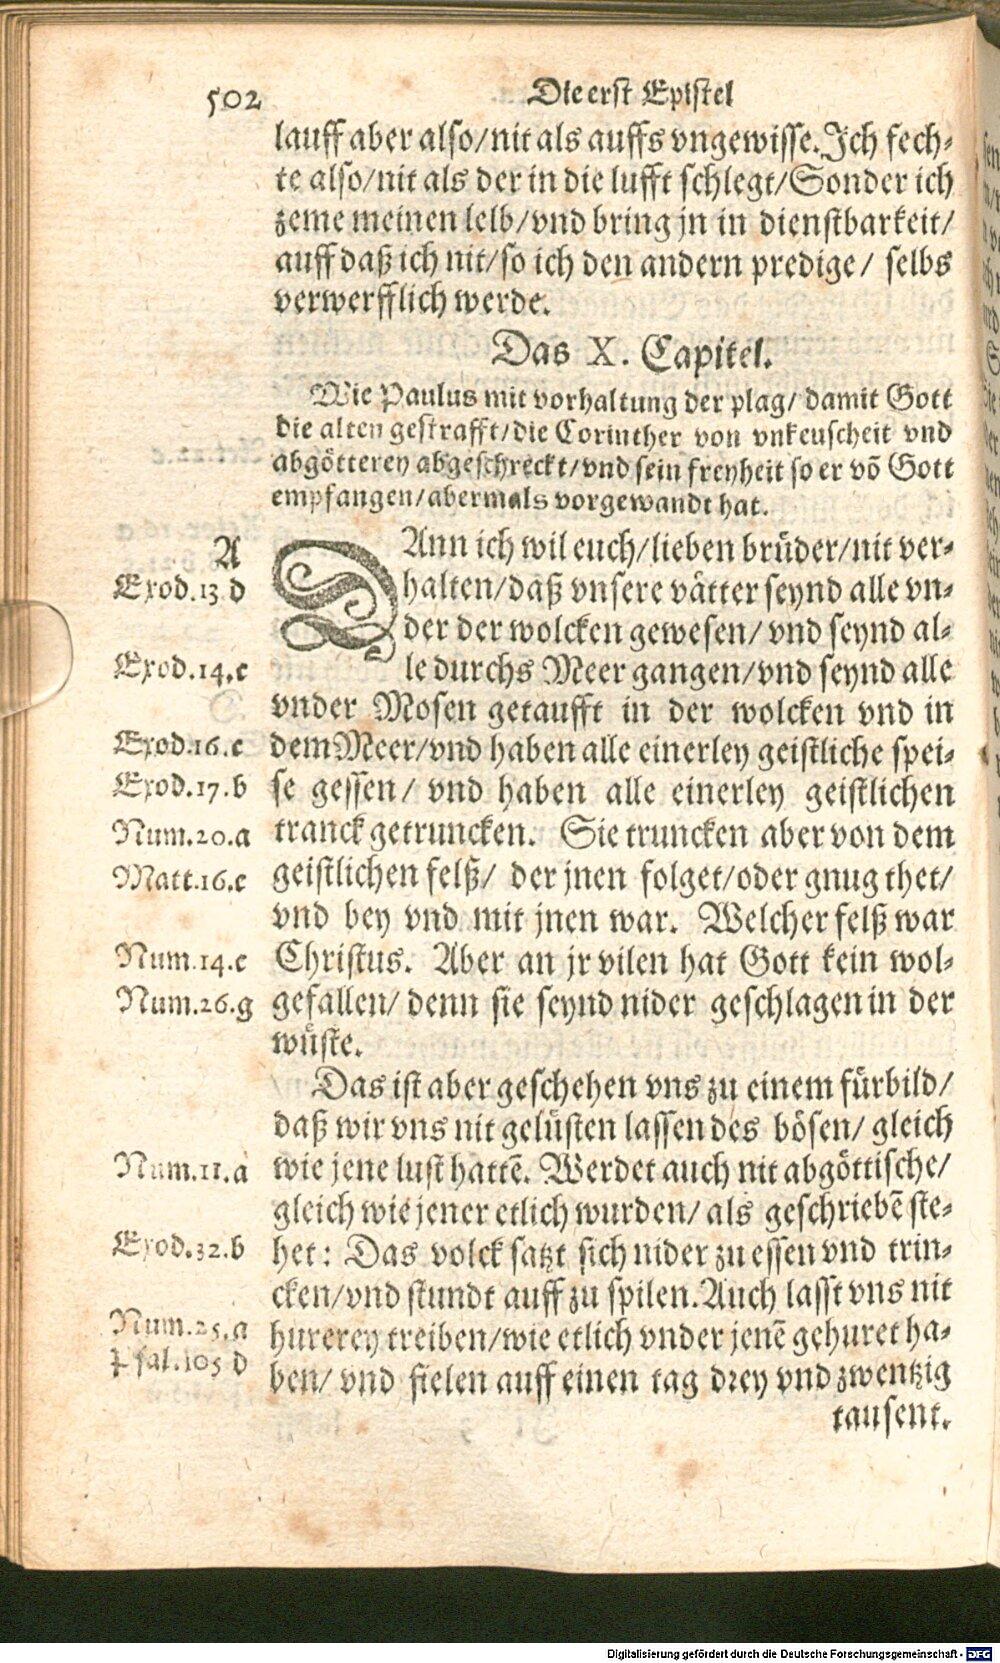 502 Die erst Epistel
lauff aber also/nit als auffs vngewisse. Ich fech-
te also/nit als der in die lufft schlegt/Sonder ich
zeme meinen leib/vnd bring jn in dienstbarkeit/
auff daß ich nit/so ich den andern predige/ selbs
verwerfflich werde.
Das X. Capitel.
Wie Paulus mit vorhaltung der plag/ damit Gott
die alten gestrafft/die Corinther von vnkeuscheit vnd
abgötterey abgeschreckt/vnd sein freyheit so er võ Gott
empfangen/abermals vorgewandt hat.
A
DAnn ich wil euch/lieben brüder/nit ver-
Exod.13 d
halten/daß vnsere vätter seynd alle vn-
der der wolcken gewesen/ vnd seynd al-
Exod.14.c
le durchs Meer gangen/vnd seynd alle
vnder Mosen getaufft in der wolcken vnd in
Exod.16.c
dem Meer/vnd haben alle einerley geistliche spei-
Exod.17.b
se gessen/ vnd haben alle einerley geistlichen
Num.20.a
tranck getruncken. Sie truncken aber von dem
Matt.16.c
geistlichen felß/ der jnen folget/oder gnug thet/
vnd bey vnd mit jnen war. Welcher felß war
Num.14.c
Christus. Aber an jr vilen hat Gott kein wol-
Num.26.g
gefallen/ denn sie seynd nider geschlagen in der
wüste.
Das ist aber geschehen vns zu einem fürbild/
daß wir vns nit gelüsten lassen des bösen/ gleich
Num.11.a
wie jene lust hattẽ. Werdet auch nit abgöttische/
gleich wie jener etlich wurden/ als geschriebẽ ste-
Exod.32.b
het: Das volck satzt sich nider zu essen vnd trin-
cken/vnd stundt auff zu spilen. Auch lasst vns nit
Num.25.a
hurerey treiben/wie etlich vnder jenẽ gehuret ha-
Psal.105 d
ben/ vnd fielen auff einen tag drey vnd zwentzig
tausent.
Digitalisierung gefördert durch die Deutsche Forschungsgemeinschaft - DFG